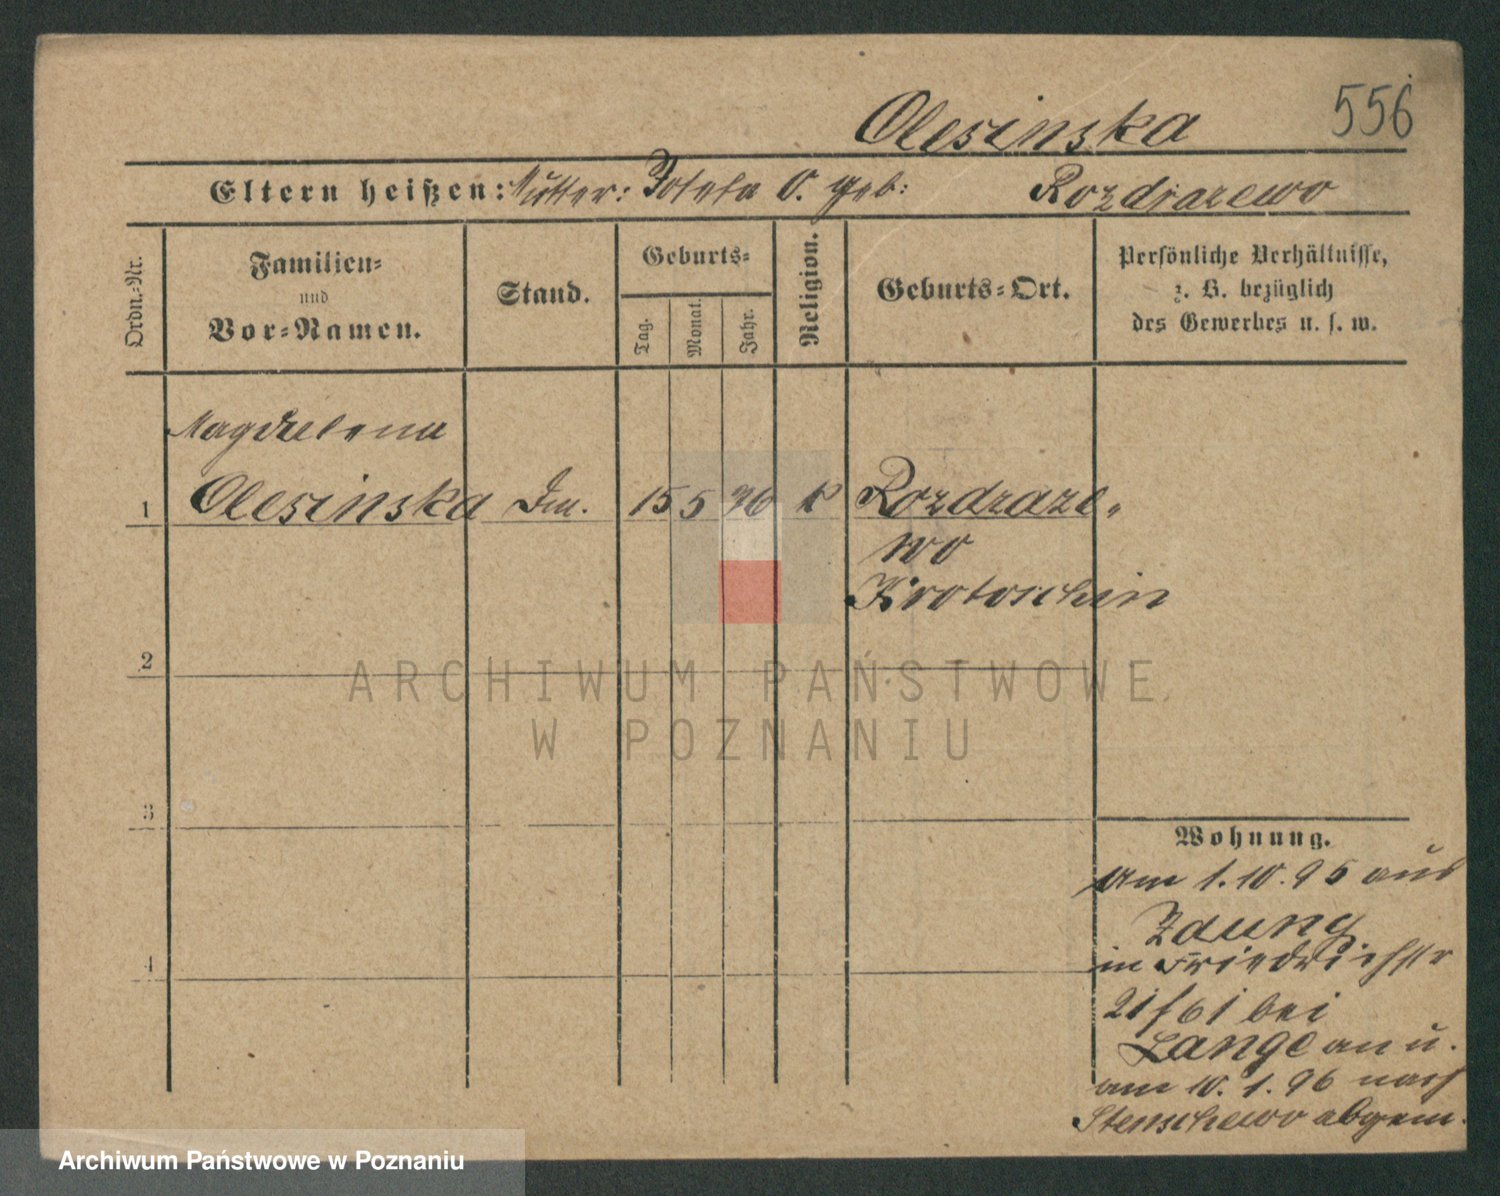 Olesinska 556
Eltern heißen: Mutter: Josefa O. geb: Rozdrazewo
Ordn.-Nr.
Familien-
und
Vor-Namen.
Stand.
Geburts-
Tag.
Monat.
Jahr.
Religion.
Geburts-Ort.
Persönliche Verhältnisse,
z. B. bezüglich
des Gewerbes u. s. w.
Magdalena
1 Olesinska 15 5 76 k Rozdraze-
wo
Krotoschin
2
3
4
ARCHIWUM PAŃSTWOWE
W POZNANIU
Wohnung.
am 1.10.95 aus
Zduny
in Friedrichstr
21/61 bei
Lange an u.
am 10.1.96 nach
Stenschewo abgem.
Archiwum Państwowe w Poznaniu